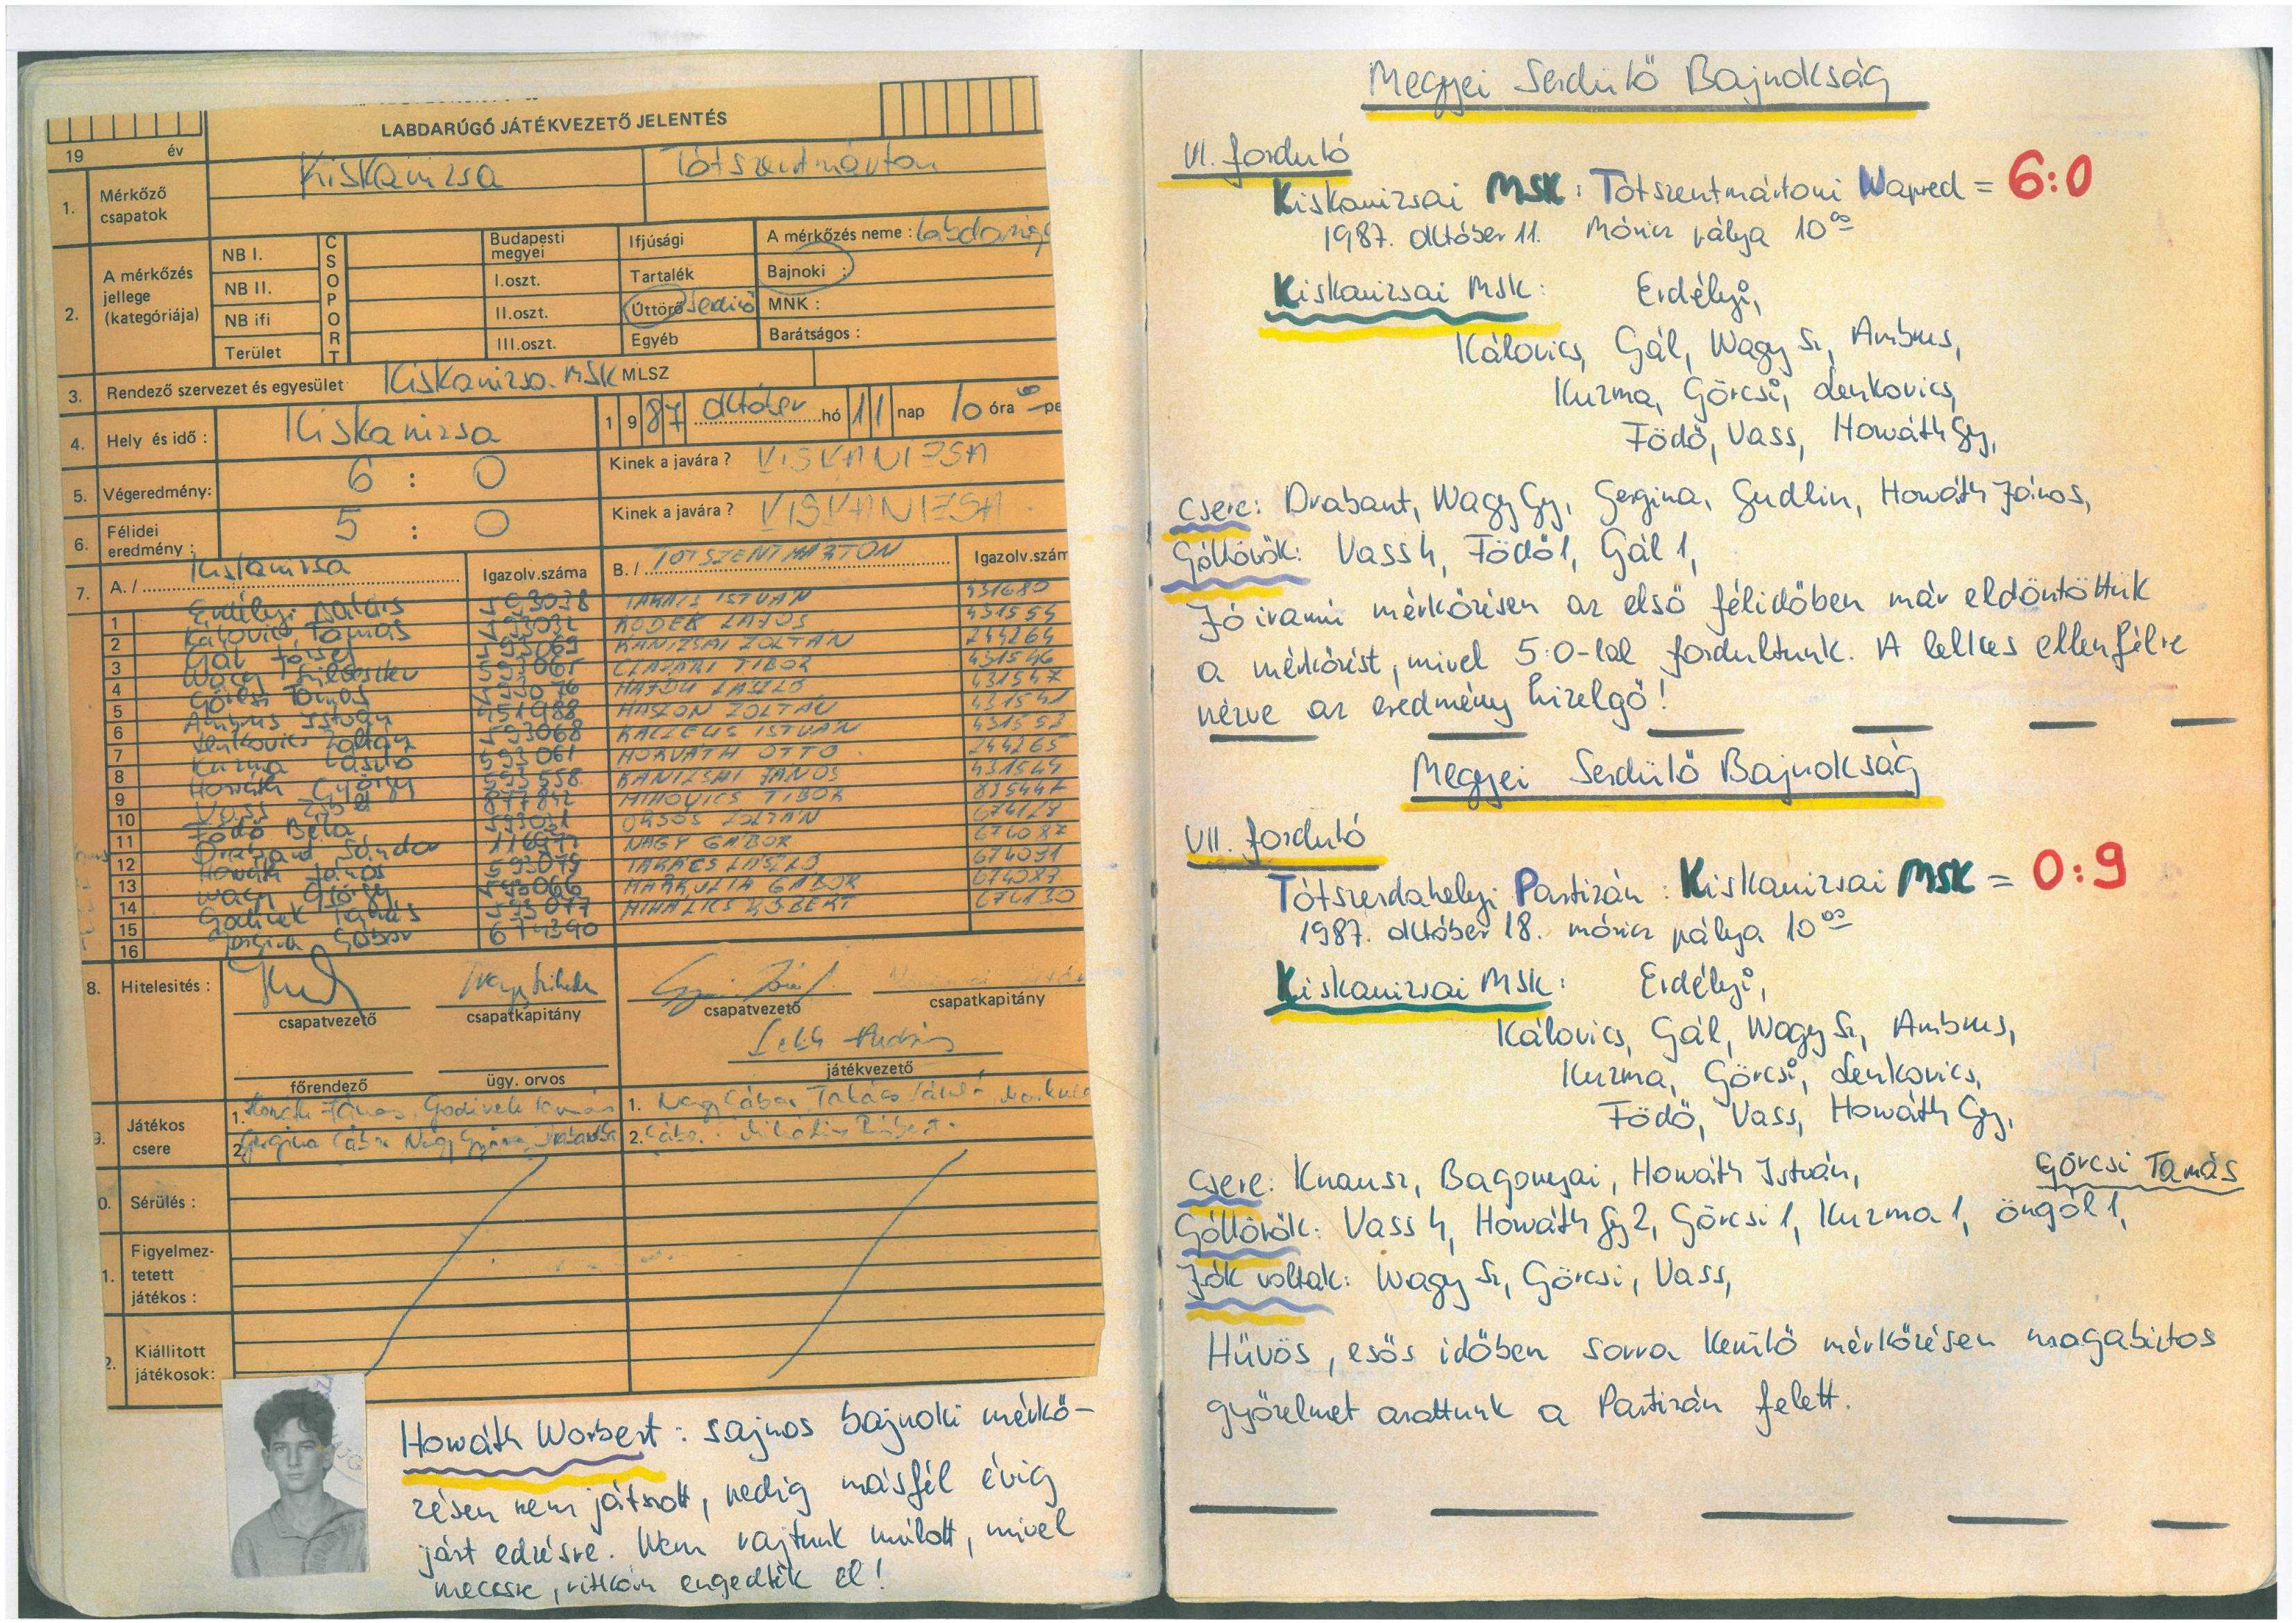 LABDARÚGÓ JÁTÉKVEZETŐ JELENTÉS
19 év
1. Mérkőző csapatok Kiskanizsa Tótszentmárton
2. A mérkőzés jellege (kategóriája)
NB I.
NB II.
NB ifi
Terület
CSOPORT
Budapesti megyei
I.oszt.
II.oszt.
III.oszt.
Ifjúsági
Tartalék
Úttörő Serdülő
Egyéb
A mérkőzés neme : labdarúgó
Bajnoki :
MNK :
Barátságos :
3. Rendező szervezet és egyesület Kiskanizsa. MSK MLSZ
4. Hely és idő : Kiskanizsa 1987 október hó 11 nap 10 óra
5. Végeredmény: 6 : 0 Kinek a javára ? KISKANIZSA
6. Félidei eredmény : 5 : 0 Kinek a javára ? KISKANIZSA
7. A./ Kiskanizsa Igazolv.száma B./ TÓTSZENTMÁRTON Igazolv.szám
1 Erdélyi 593038 TAKÁCS ISTVÁN 431680
2 Kálovics Tamás 593032 KÓDER LAJOS
3 Gál József 593069 KANIZSAI ZOLTÁN 244264
4 Wagy Szilveszter 593065 TIBOR 431546
5 Görcsi Tamás 593076 HAJDU LÁSZLÓ 431547
6 Ambrus István 451988 ZOLTÁN 431541
7 Lenkovics Zoltán 593068 ISTVÁN 431553
8 Kuzma László 593061 HORVÁTH OTTÓ 244265
9 Horváth György 593558 KANIZSAI JÁNOS 431544
10 Vass 877842 MIHOVICS TIBOR
11 Födő Béla 593031 ORSÓS ZOLTÁN 674128
12 Drabant Sándor 116977 NAGY GÁBOR 674087
13 Horváth János 593079 TAKÁCS LÁSZLÓ 674091
14 Wagy György 593066 GÁBOR
15 Tamás 593077 MIHALICS RÓBERT 674130
16 Gergina Gábor 674390
8. Hitelesités :
csapatvezető csapatkapitány csapatvezető csapatkapitány
főrendező ügy. orvos játékvezető
Játékos csere
1. Horváth János, Tamás 1. Nagy Gábor, Takács László
2. Gergina Gábor Nagy György 2. Gábor
Sérülés :
Figyelmez-
tetett
játékos :
Kiállitott
játékosok:
Horváth Norbert : sajnos bajnoki mérkő-
zésen nem játszott, pedig másfél évig
járt edzésre. Nem rajtunk múlott, mivel
meccsre, ritkán engedték el!
Megyei Serdülő Bajnokság
VI. forduló
Kiskanizsai MSK : Tótszentmártoni Napred = 6:0
1987. október 11. Móricz pálya 10⁰⁰
Kiskanizsai MSK: Erdélyi,
Kálovics, Gál, Wagy Sz, Ambrus,
Kuzma, Görcsi, Lenkovics,
Födő, Vass, Horváth Gy,
Csere: Drabant, Wagy Gy, Gergina, Gudlin, Horváth János,
Góllövők: Vass 4, Födő 1, Gál 1,
Jó iramú mérkőzésen az első félidőben már eldöntöttük
a mérkőzést, mivel 5:0-lal fordultunk. A lelkes ellenfélre
nézve az eredmény hízelgő!
Megyei Serdülő Bajnokság
VII. forduló
Tótszerdahelyi Partizán : Kiskanizsai MSK = 0:9
1987. október 18. móricz pálya 10⁰⁰
Kiskanizsai MSK: Erdélyi,
Kálovics, Gál, Wagy Sz, Ambrus,
Kuzma, Görcsi, Lenkovics,
Födő, Vass, Horváth Gy,
Csere: Knausz, Bagonyai, Horváth István, Görcsi Tamás
Góllövők: Vass 4, Horváth Gy 2, Görcsi 1, Kuzma 1, öngól 1,
Jók voltak: Wagy Sz, Görcsi, Vass,
Hűvös, esős időben sorra kerülő mérkőzésen magabiztos
győzelmet arattunk a Partizán felett.